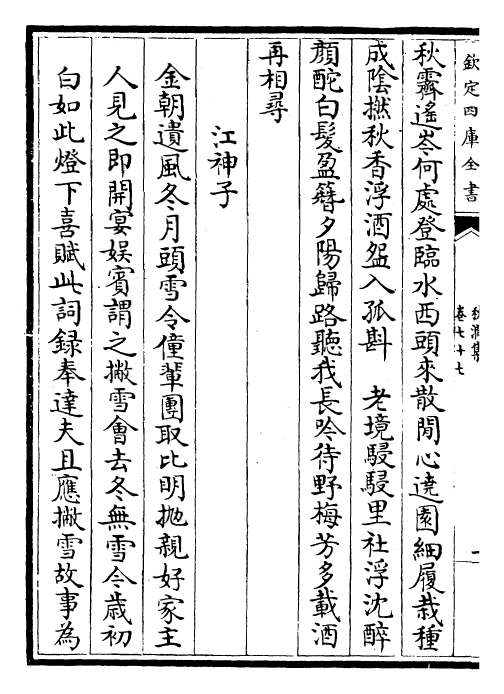 欽定四庫全書
秋澗集
卷七十七
秋霽遙岑何處登臨水西頭來散閒心遶園細履栽種
成陰撚秋香浮酒盌入孤斟　老境駸駸里社浮沈醉
顏酡白髮盈簪夕陽歸路聽我長吟待野梅芳多載酒
再相尋
江神子
金朝遺風冬月頭雪令僮輩團取比明拋親好家主
人見之即開宴娱賓謂之撇雪會去冬無雪今歲初
白如此燈下喜賦此詞録奉達夫且應撇雪故事為